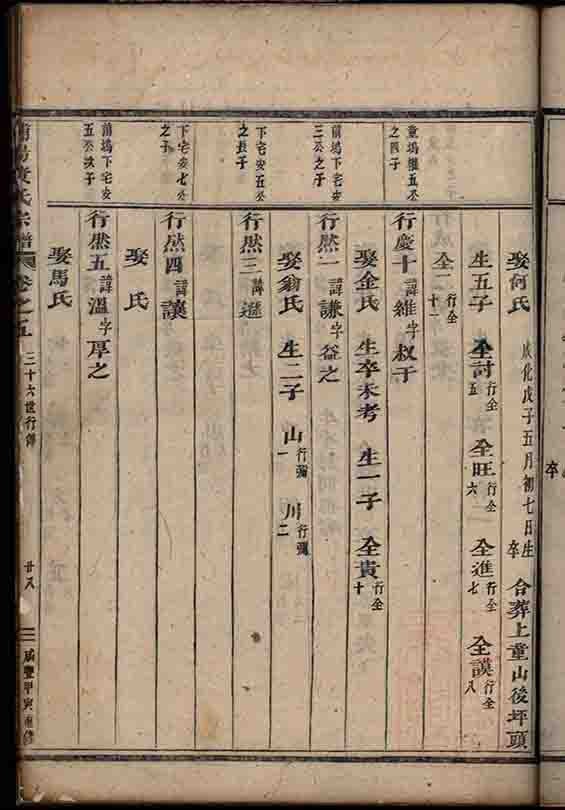 娶何氏 成化戊子五月初七日生 卒 合葬上童山後坪頭
生五子 全討行全五 全旺行全六 全進行全七 全謨行全八
全一行全十一
童塢繼五公之四子
行慶十諱維字叔于
娶金氏 生卒未考 生一子 全貴行全十
前塢下宅安三公之子
行烋一諱謙字益之
娶翁氏 生二子 山行彌一 川行彌二
下宅安五公之長子
行烋三諱遜
下宅安七公之子
行烋四諱讓
娶 氏
前塢下宅安五公次子
行烋五諱溫字厚之
娶馬氏
氏宗譜 卷之五 三十六世行傳 廿八 咸豐甲寅重修
卒